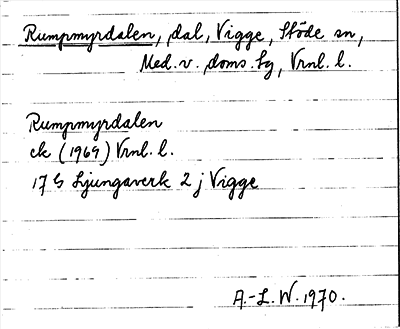 Rumpmyrdalen, dal, Vigge, Stöde sn,
Med. v. doms. sg, Vrnl. l.
Rumpmyrdalen
ek (1969) Vrnl. l.
17 G Ljungaverk 2 j Vigge
A.-L. W. 1970.